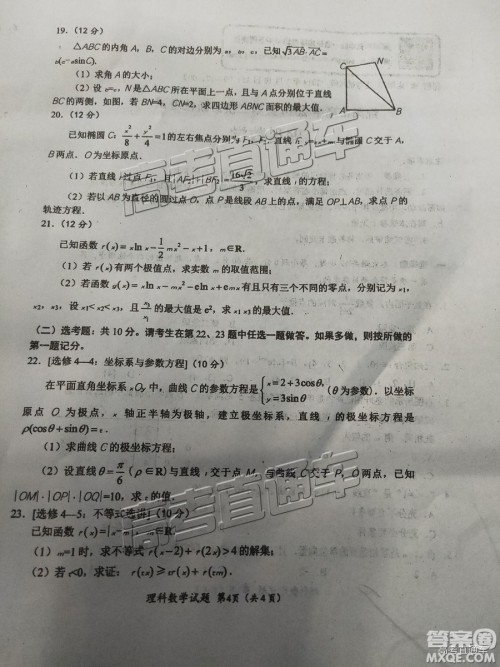 19. (12 分)
△ABC 的内角 A，B，C 的对边分别为 a，b，c，已知 √3 AB·AC=
b(c-asinC).
(1) 求角 A 的大小；
(2) 设 b=c，N 是△ABC 所在平面上一点，且与 A 点分别位于直线
BC 的两侧，如图，若 BN=4，CN=2，求四边形 ABNC 面积的最大值.
C
N
A
B
20. (12 分)
已知椭圆 C：x²/8 + y²/4 =1 的左右焦点分别为 F₁，F₂，直线 l：y=kx+m 与椭圆 C 交于 A，
B 两点. O 为坐标原点.
(1) 若直线 l 过点 F₁，且|AF₂|+|BF₂|=16√2/3，求直线 l 的方程；
(2) 若以 AB 为直径的圆过点 O，点 P 是线段 AB 上的点，满足 OP⊥AB，求点 P 的
轨迹方程.
21. (12 分)
已知函数 f(x)=xlnx-1/2 mx²-x+1，m∈R.
(1) 若 f(x)有两个极值点，求实数 m 的取值范围；
(2) 若函数 g(x)=xlnx-mx²-elnx+emx 有且只有三个不同的零点，分别记为 x₁，
x₂，x₃，设 x₁<x₂<x₃，且 的最大值是 e²，求 x₁x₃ 的最大值.
(二) 选考题：共 10 分。请考生在第 22、23 题中任选一题做答。如果多做，则按所做的
第一题记分。
22. [选修 4—4：坐标系与参数方程] (10 分)
在平面直角坐标系 xOy 中，曲线 C 的参数方程为 {x=2+3cosθ, y=3sinθ (θ 为参数). 以坐标
原点 O 为极点，x 轴正半轴为极轴，建立极坐标系，直线 l 的极坐标方程是
ρ(cosθ+sinθ)=t.
(1) 求曲线 C 的极坐标方程；
(2) 设直线 θ=π/6 (ρ∈R) 与直线 l 交于点 M，与曲线 C 交于 P，Q 两点，已知
|OM|·|OP|·|OQ|=10，求 t 的值.
23. [选修 4—5：不等式选讲] (10 分)
已知函数 f(x)=|x-
(1) m=1 时，求不等式 f(x-2)+f(2x)>4 的解集；
(2) 若 t<0，求证：f(tx)≥tf(x)+f(tm).
理科数学试题 第4页（共 4 页）
高考直通车
高考直通车
高考直通车
答案圈
MXQE.COM